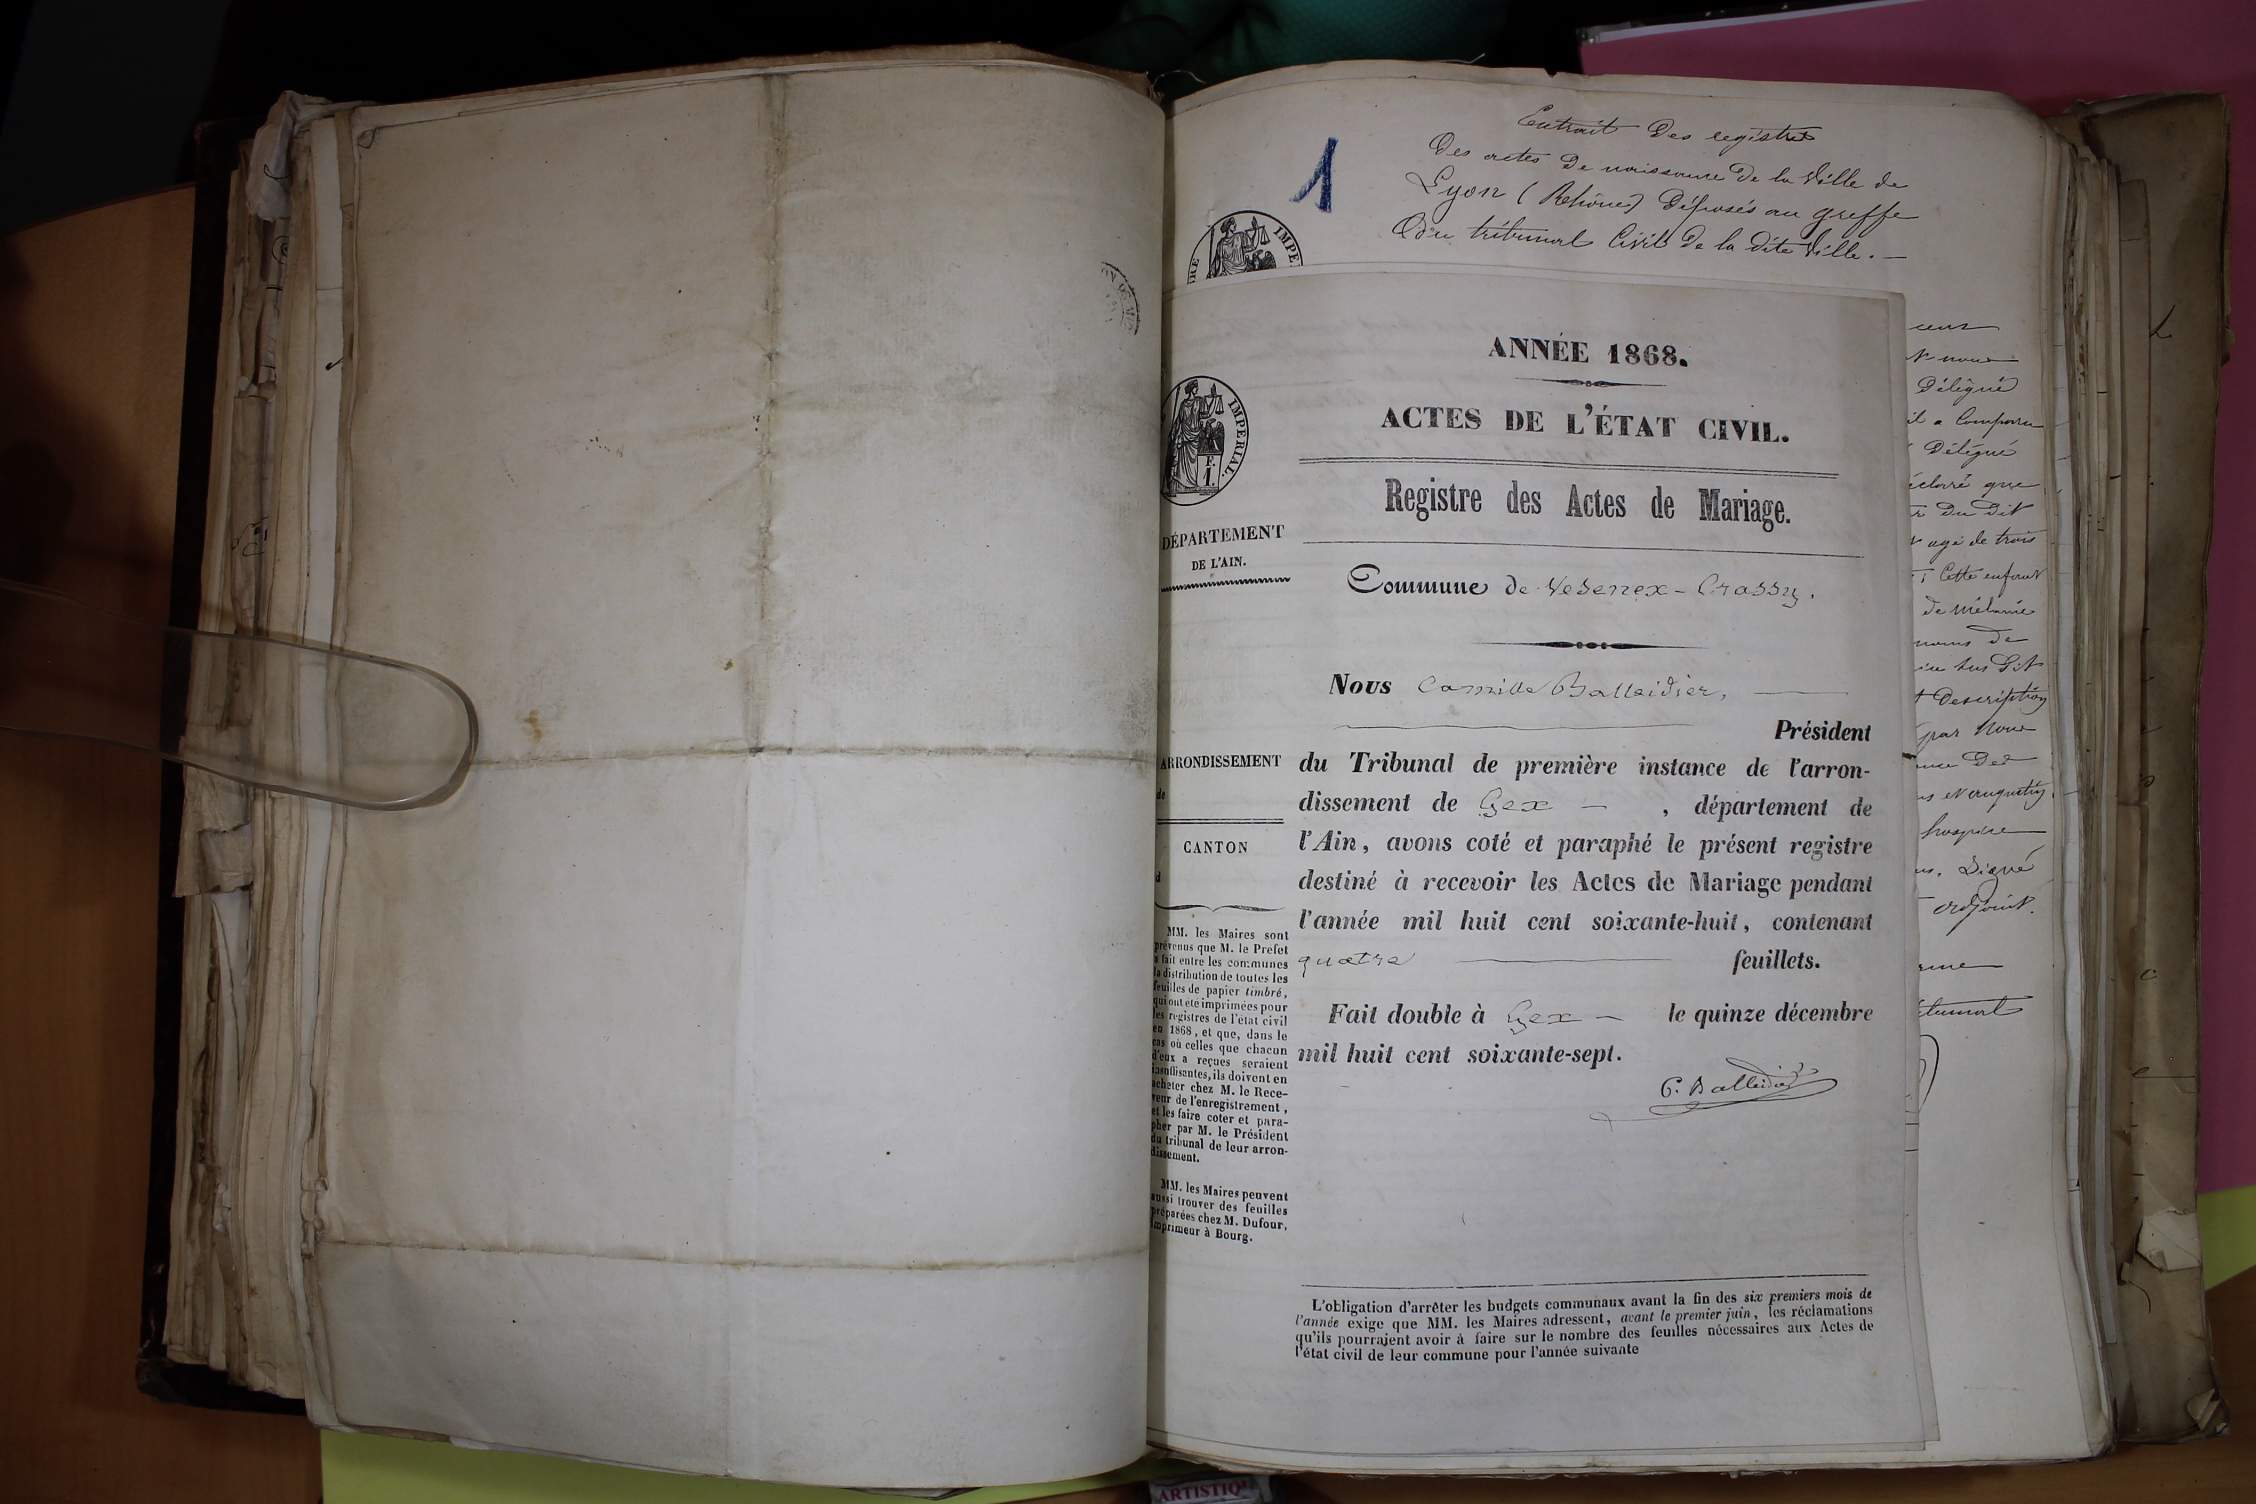 1
Extrait Des registres
Des actes De naissance De la Ville de
Lyon (Rhône) Déposés au greffe
Du tribunal Civil De la dite Ville. —
IMPE
ANNÉE 1868.
ACTES DE L'ÉTAT CIVIL.
Registre des Actes de Mariage.
IMPERIAL.
F.
1.
DÉPARTEMENT
DE L'AIN.
Commune de Vesenex-Crassy.
Nous Camille Balleidier,
Président
ARRONDISSEMENT
de
CANTON
d
du Tribunal de première instance de l'arron-
dissement de Gex — , département de
l'Ain, avons coté et paraphé le présent registre
destiné à recevoir les Actes de Mariage pendant
l'année mil huit cent soixante-huit, contenant
quatre feuillets.
Fait double à Gex — le quinze décembre
mil huit cent soixante-sept.
C. Balleidier
MM. les Maires sont
prévenus que M. le Prefet
a fait entre les communes
la distribution de toutes les
feuilles de papier timbré,
qui ont été imprimées pour
les registres de l'état civil
en 1868, et que, dans le
cas où celles que chacun
d'eux a reçues seraient
insuffisantes, ils doivent en
acheter chez M. le Rece-
veur de l'enregistrement,
et les faire coter et para-
pher par M. le Président
du tribunal de leur arron-
dissement.
MM. les Maires peuvent
aussi trouver des feuilles
préparées chez M. Dufour,
imprimeur à Bourg.
L'obligation d'arrêter les budgets communaux avant la fin des six premiers mois de
l'année exige que MM. les Maires adressent, avant le premier juin, les réclamations
qu'ils pourraient avoir à faire sur le nombre des feuilles nécessaires aux Actes de
l'état civil de leur commune pour l'année suivante
Délégué
a Comparu
Délégué
que
Du Dit
agé de trois
Cette enfant
de Mélanie
noms de
Description
par Nous
hospice
Signé
adjoint.
ARTISTIQ